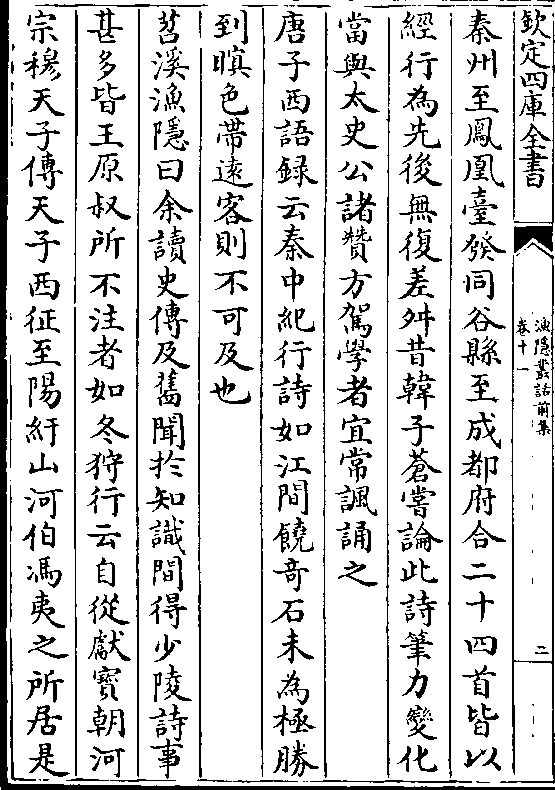 欽定四庫全書
漁隱叢話前集
卷十一
二
秦州至鳳凰臺發同谷縣至成都府合二十四首皆以
經行為先後無復差舛昔韓子蒼嘗論此詩筆力變化
當與太史公諸贊方駕學者宜常諷誦之
唐子西語録云秦中紀行詩如江間饒竒石未為極勝
到瞑色帶遠客則不可及也
苕溪漁隱曰余讀史傳及舊聞於知識間得少陵詩事
甚多皆王原叔所不注者如冬狩行云自從獻寳朝河
宗穆天子傳天子西征至陽紆山河伯馮夷之所居是